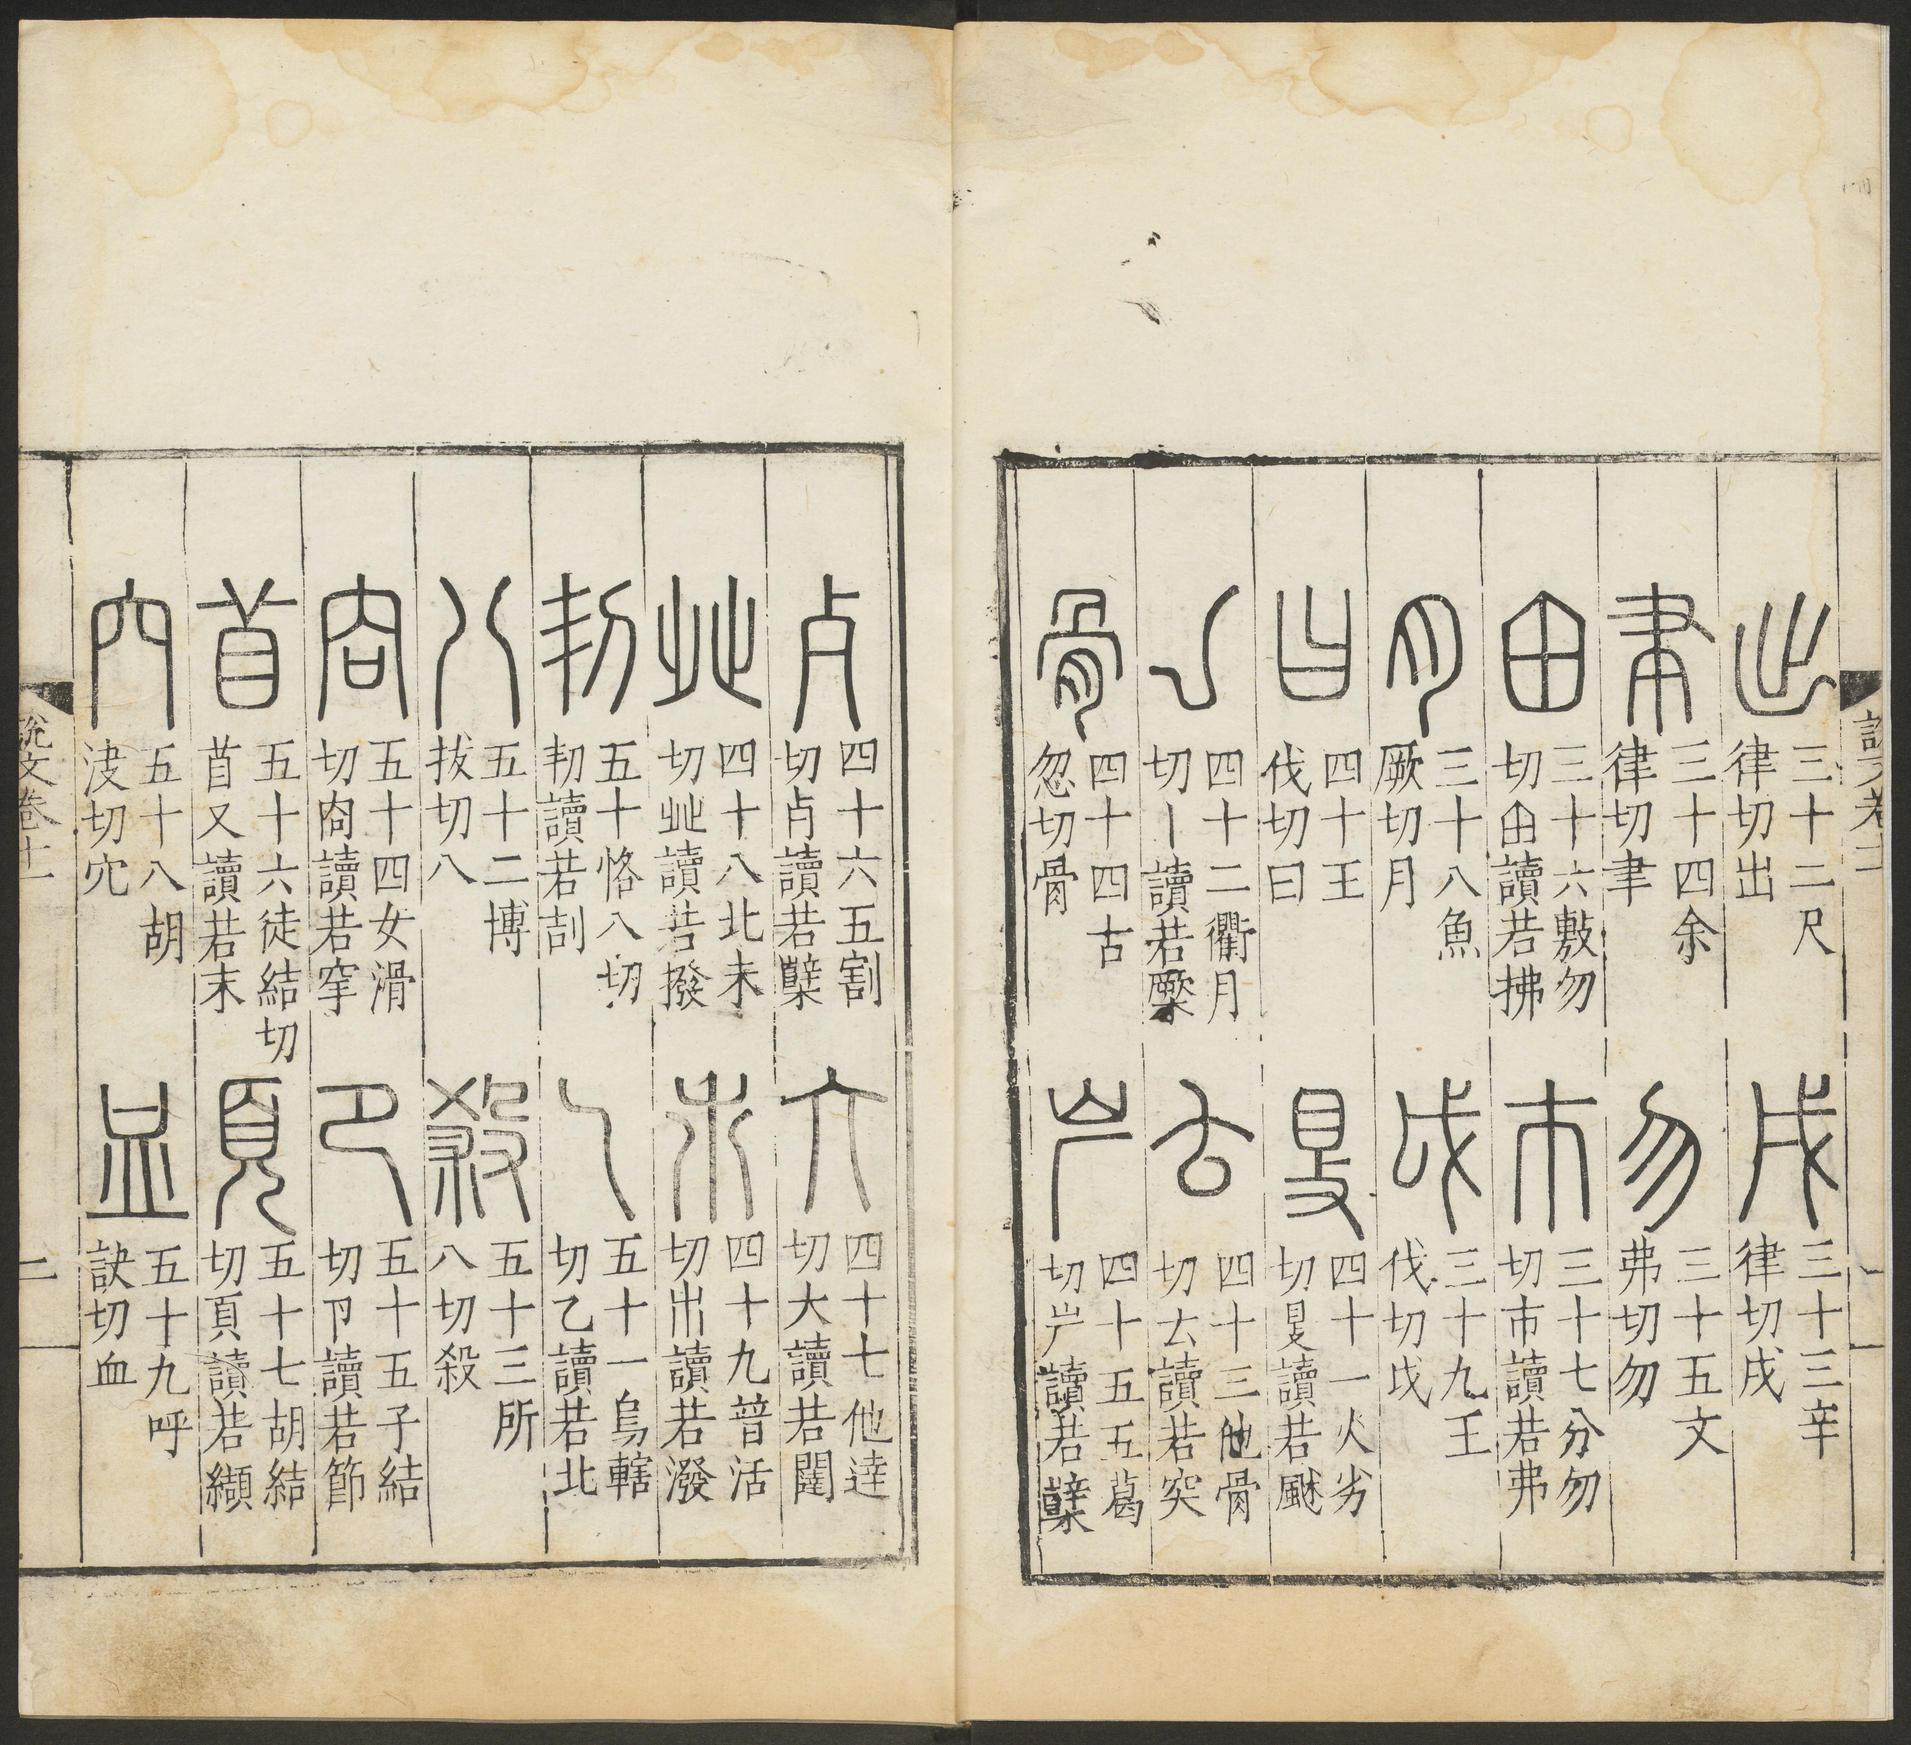 出 三十二尺律切出
戌 三十三辛律切戌
聿 三十四余律切聿
勿 三十五文弗切勿
甶 三十六敷勿切甶讀若拂
巿 三十七分勿切巿讀若弗
月 三十八魚厥切月
戉 三十九王伐切戉
曰 四十王伐切曰
𥄎 四十一火劣切𥄎讀若颰
亅 四十二衢月切亅讀若橜
𠫓 四十三他骨切𠫓讀若突
骨 四十四古忽切骨
屵 四十五五葛切屵讀若櫱
歺 四十六五割切歺讀若櫱
大 四十七他達切大讀若闥
癶 四十八北末切癶讀若撥
𣎵 四十九普活切𣎵讀若潑
㓞 五十恪八切㓞讀若刮
乙 五十一烏轄切乙讀若北
八 五十二博拔切八
殺 五十三所八切殺
㕯 五十四女滑切㕯讀若穻
卪 五十五子結切卪讀若節
苜 五十六徒結切苜又讀若末
頁 五十七胡結切頁讀若纈
穴 五十八胡決切穴
血 五十九呼訣切血
說文卷十一 二